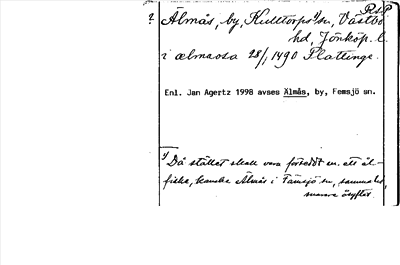 Rs.P
? Älmås, by, Kulltorps¹⁾ sn, Västbo
hd, Jönköp. l.
i ælmaosa 28/1 1490 Plattinge.
Enl. Jan Agertz 1998 avses Älmås, by, Femsjö sn.
¹⁾ Då stället skall vara försett m. ett ål-
fiske, kanske Älmås i Femsjö sn, samma hd,
snarare åsyftas.